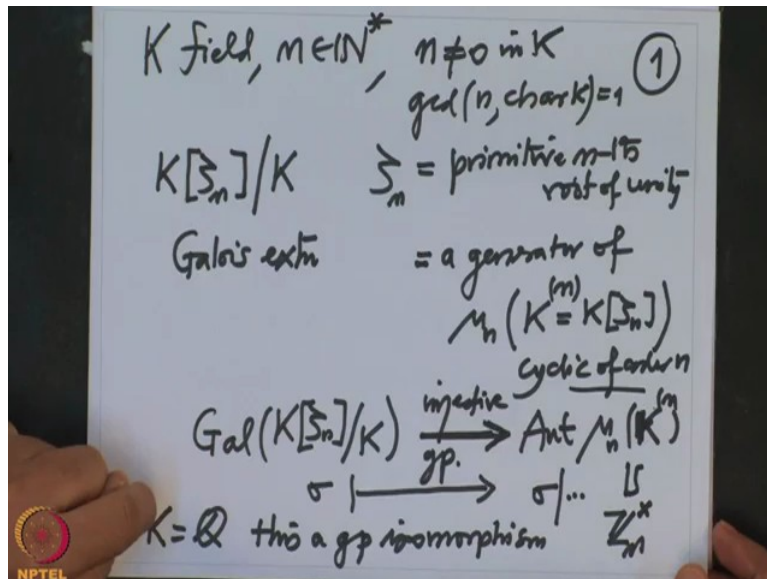 K field, n∈ℕ*, n≠0 in K
①
gcd(n, char K)=1
K[ζ_n]/K ζ_n = primitive n-th
root of unity
Galois extn = a generator of
μ_n(K^(n) = K[ζ_n])
cyclic of order n
Gal(K[ζ_n]/K) injective → gp. Aut μ_n(K^(n))
σ ↦ σ|...
K=Q this a gp isomorphism ℤ_n^*
NPTEL